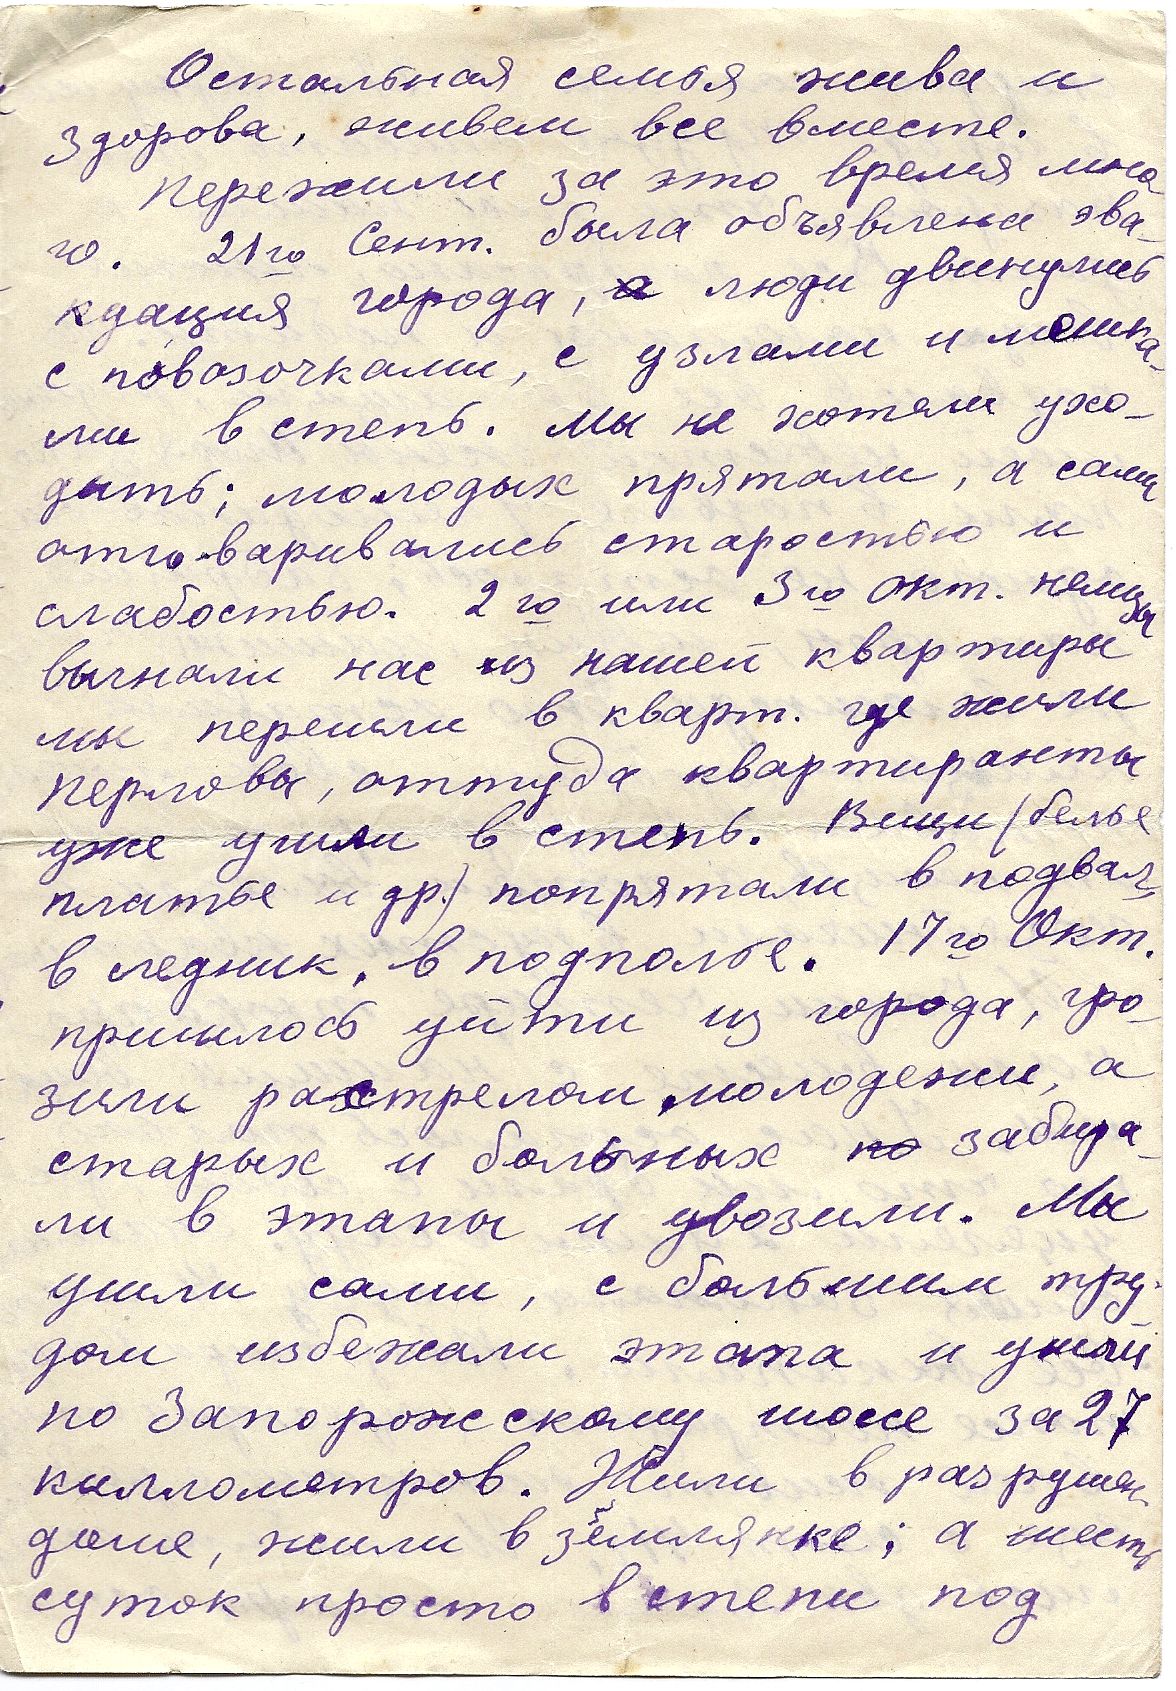 Остальная семья жива и
здорова, живем все вместе.
Пережили за это время мно
го. 21го Сент. была объявлена эва-
куация города, а люди двинулись
с повозочками, с узлами и мешка-
ми в степь. Мы не хотели ухо-
дить; молодых прятали, а сами
отговаривались старостью и
слабостью. 2го или 3го Окт. немцы
выгнали нас из нашей квартиры
мы перешли в кварт. где жили
Перловы, оттуда квартиранты
уже ушли в степь. Вещи (белье
платье и др.) попрятали в подвал,
в ледник, в подполье. 17го Окт.
пришлось уйти из города, гро-
зили расстрелом молодежи, а
старых и больных по забира-
ли в этапы и увозили. Мы
ушли сами, с большим тру-
дом избежали этапа и ушли
по Запорожскому шоссе за 27
киллометров. Жили в разрушен.
доме, жили в землянке; а шесть
суток просто в степи под